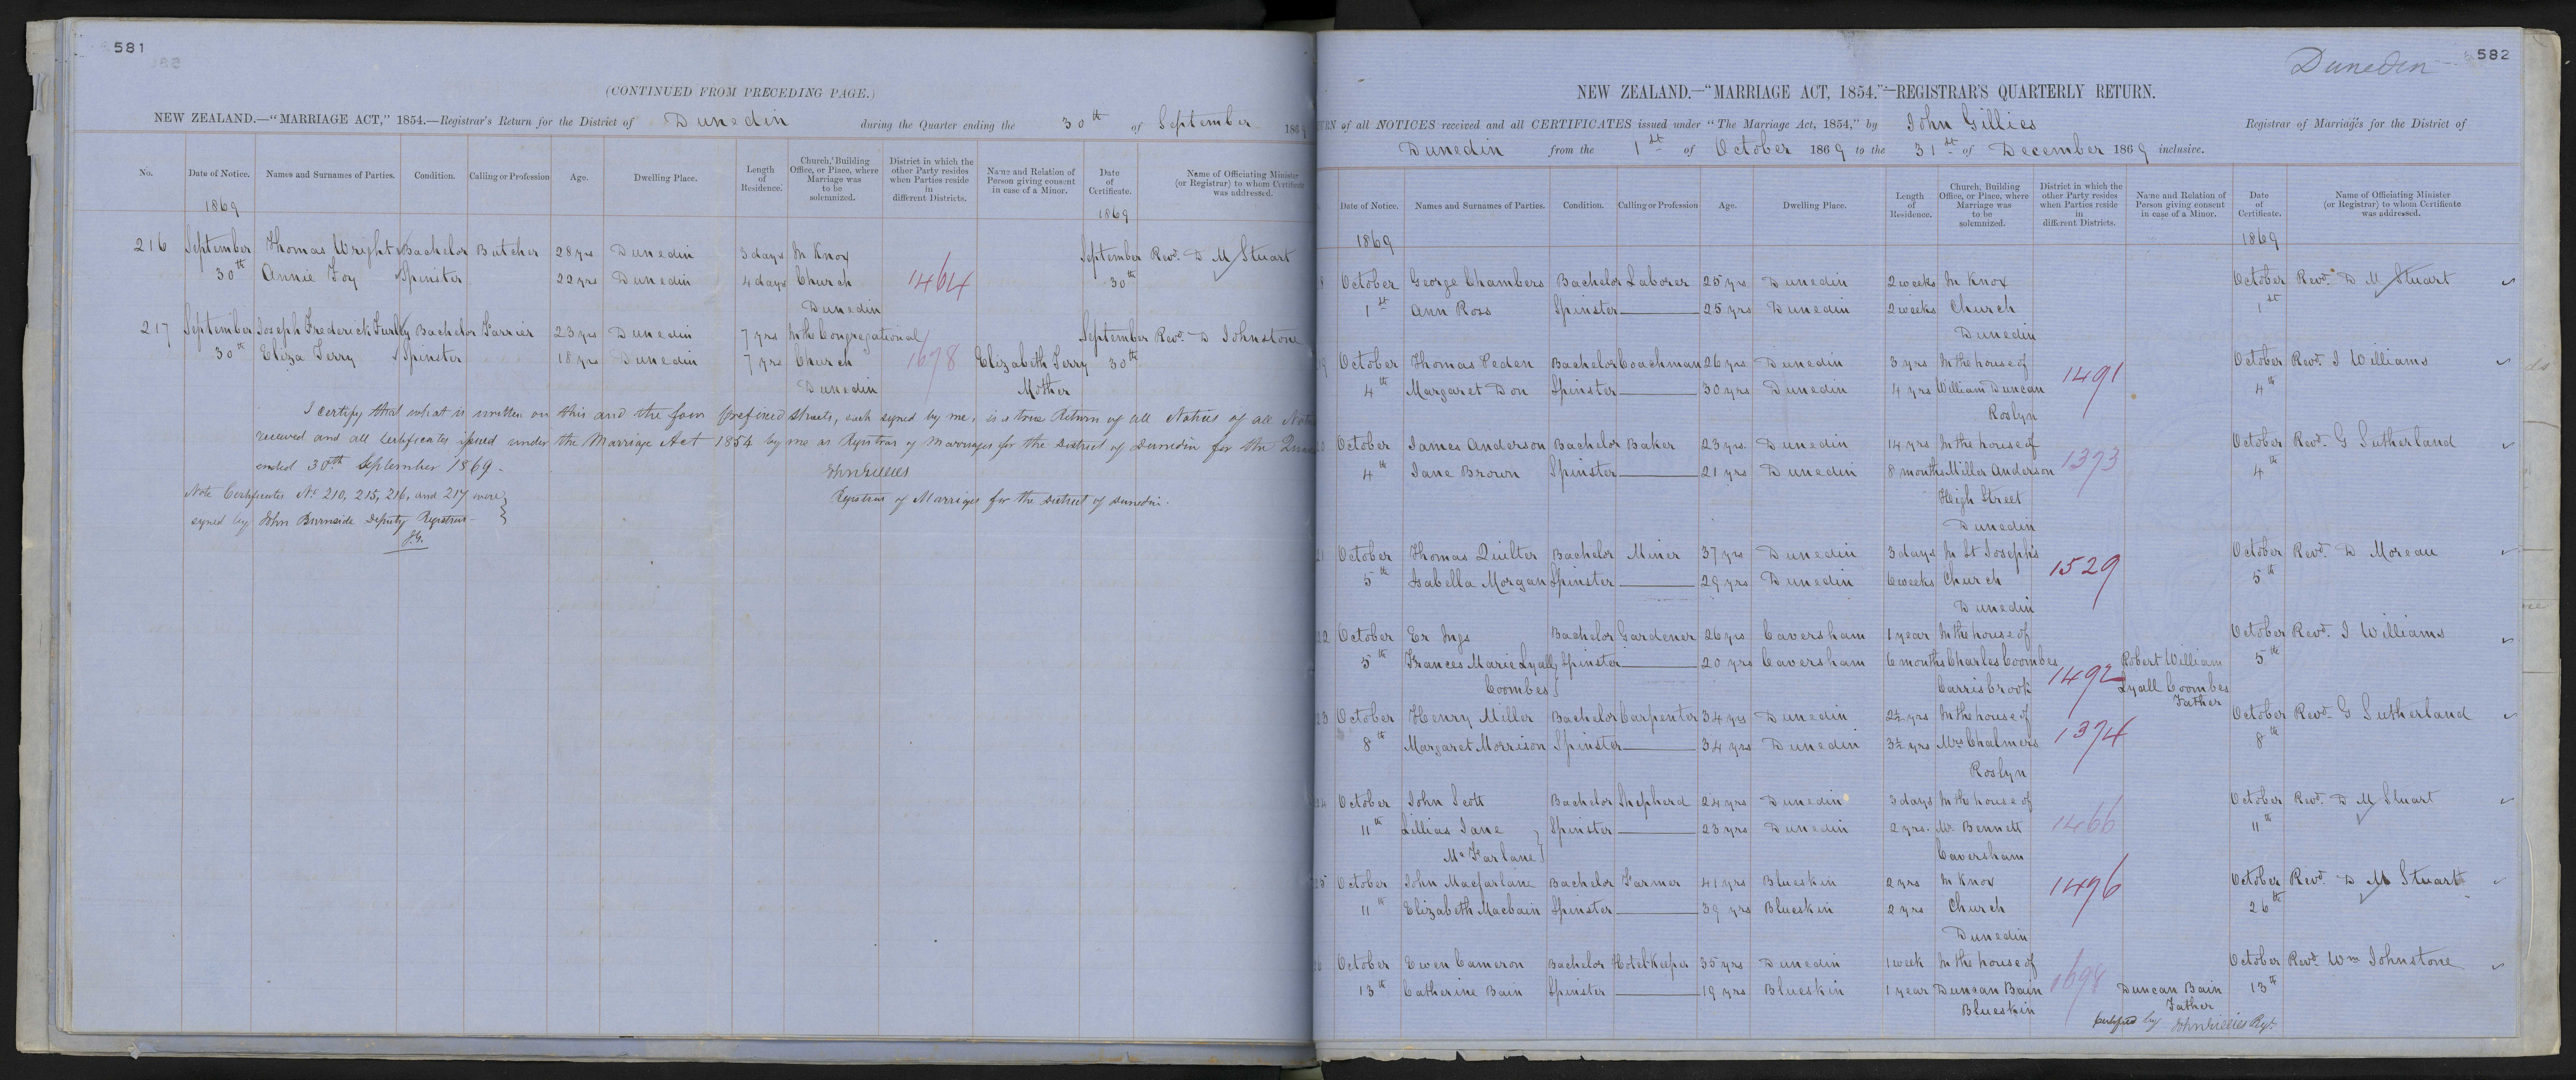 581
(CONTINUED FROM PRECEDING PAGE.)
NEW ZEALAND.—"MARRIAGE ACT," 1854.—Registrar's Return for the District of Dunedin during the Quarter ending the 30th of September 1869
No. Date of Notice. Names and Surnames of Parties. Condition. Calling or Profession Age. Dwelling Place. Length of Residence. Church, Building Office, or Place, where Marriage was to be solemnized. District in which the other Party resides when Parties reside in different Districts. Name and Relation of Person giving consent in case of a Minor. Date of Certificate. Name of Officiating Minister (or Registrar) to whom Certificate was addressed.
1869 1869
216 September Thomas Wright Bachelor Butcher 28 yrs Dunedin 3 days In Knox September Revd. D M Stuart
30th Annie Foy Spinster 22 yrs Dunedin 4 days Church 1464 30th
Dunedin
217 September Joseph Frederick Furley Bachelor Farrier 23 yrs Dunedin 7 yrs In the Congregational September Revd. D Johnstone
30th Eliza Terry Spinster 18 yrs Dunedin 7 yrs Church 1678 Elizabeth Terry 30th
Dunedin Mother
I certify that what is written on this and the four prefixed sheets, each signed by me, is a true Return of all Notices of all
received and all Certificates issued under the Marriage Act 1854 by me as Registrar of Marriages for the District of Dunedin for the
ended 30th September 1869.
John Gillies
Registrar of Marriages for the District of Dunedin.
Note Certificates No. 210, 215, 216, and 217 were
signed by John Burnside Deputy Registrar
J.G.
582
Dunedin
NEW ZEALAND.—"MARRIAGE ACT, 1854."—REGISTRAR'S QUARTERLY RETURN.
of all NOTICES received and all CERTIFICATES issued under "The Marriage Act, 1854," by John Gillies Registrar of Marriages for the District of
Dunedin from the 1st of October 1869 to the 31st of December 1869 inclusive.
Date of Notice. Names and Surnames of Parties. Condition. Calling or Profession Age. Dwelling Place. Length of Residence. Church, Building Office, or Place, where Marriage was to be solemnized. District in which the other Party resides when Parties reside in different Districts. Name and Relation of Person giving consent in case of a Minor. Date of Certificate. Name of Officiating Minister (or Registrar) to whom Certificate was addressed.
1869 1869
October George Chambers Bachelor Laborer 25 yrs Dunedin 2 weeks In Knox October Revd. D M Stuart
1st Ann Ross Spinster 25 yrs Dunedin 2 weeks Church 1st
Dunedin
October Thomas Peden Bachelor Coachman 26 yrs Dunedin 3 yrs In the house of October Revd. J Williams
4th Margaret Don Spinster 30 yrs Dunedin 4 yrs William Duncan 1491 4th
Roslyn
October James Anderson Bachelor Baker 23 yrs. Dunedin 14 yrs In the house of October Revd. G Sutherland
4th Jane Brown Spinster 21 yrs Dunedin 8 months Miller Anderson 1373 4th
High Street
Dunedin
October Thomas Quilter Bachelor Miner 37 yrs Dunedin 3 days In St Joseph's October Revd. D Moreau
5th Isabella Morgan Spinster 29 yrs Dunedin 6 weeks Church 1529 5th
Dunedin
October Er Ings Bachelor Gardener 26 yrs Caversham 1 year In the house of October Revd. J Williams
5th Frances Marie Lyall Spinster 20 yrs Caversham 6 months Charles Coombes 1492 Robert William 5th
Coombes Carrisbrook Lyall Coombes
Father
October Henry Miller Bachelor Carpenter 34 yrs Dunedin 2½ yrs In the house of October Revd. G Sutherland
8th Margaret Morrison Spinster 34 yrs Dunedin 3½ yrs Mrs Chalmers 1374 8th
Roslyn
October John Scott Bachelor Shepherd 24 yrs Dunedin 3 days In the house of October Revd. D M Stuart
11th Lillias Jane Spinster 23 yrs Dunedin 2 yrs. Mr. Bennett 1466 11th
McFarlane Caversham
October John Macfarlane Bachelor Farmer 41 yrs Blueskin 2 yrs In Knox 1496 October Revd. D M Stuart
11th Elizabeth Macbain Spinster 39 yrs Blueskin 2 yrs Church 26th
Dunedin
October Ewen Cameron Bachelor Hotel Keeper 35 yrs Dunedin 1 week In the house of October Revd. Wm Johnstone
13th Catherine Bain Spinster 19 yrs Blueskin 1 year Duncan Bain 1698 Duncan Bain 13th
Blueskin Father
Certified by John Gillies Regr.